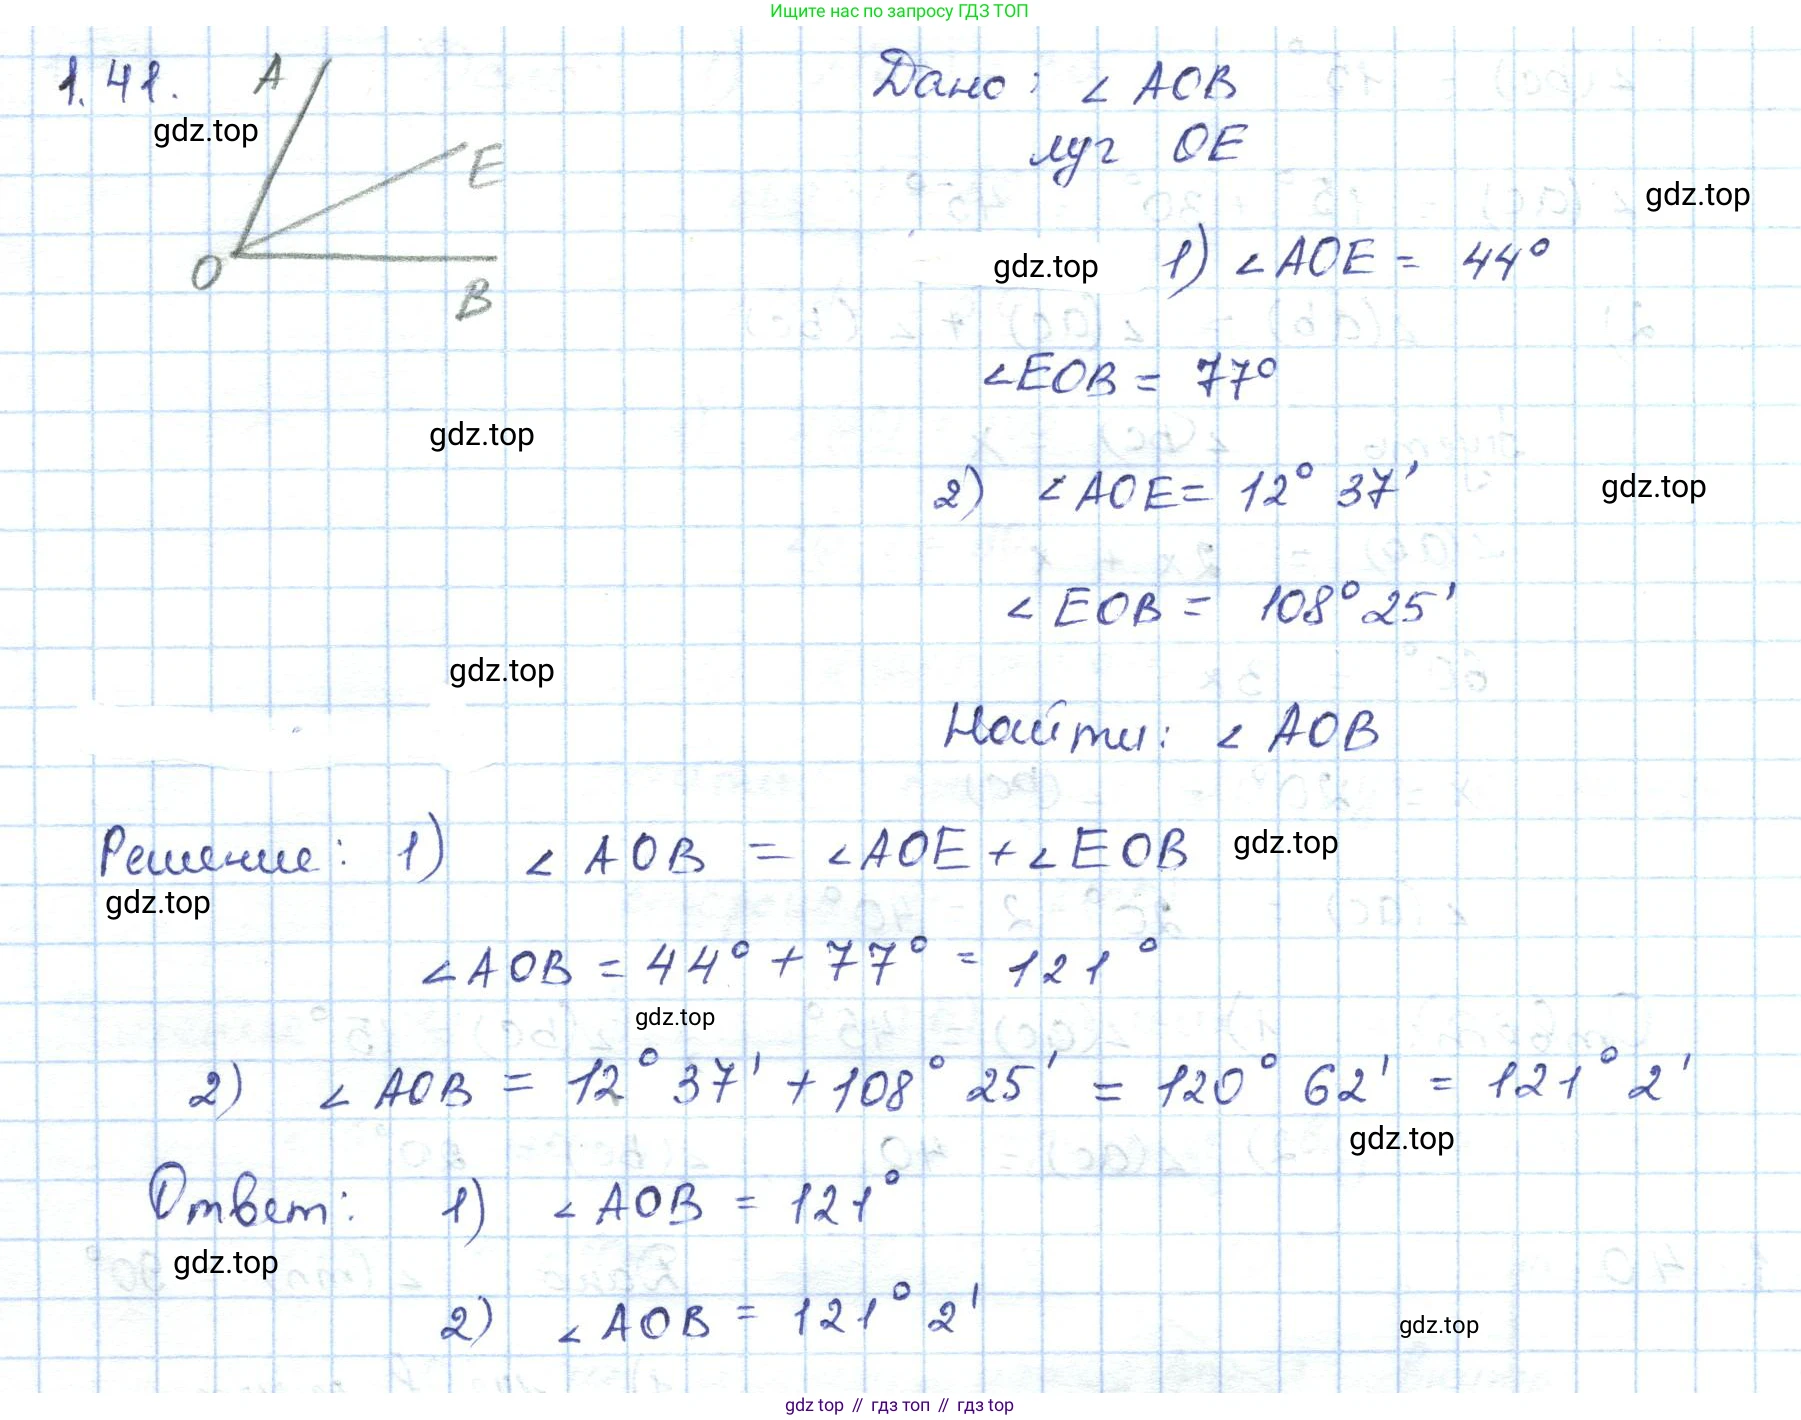 Ищите нас по запросу ГДЗ ТОП
1.41.
A
E
O
B
gdz.top
Дано: ∠ AOB
луч OE
gdz.top
gdz.top
1) ∠AOE = 44°
∠EOB = 77°
gdz.top
2) ∠AOE = 12° 37'
gdz.top
∠ EOB = 108° 25'
gdz.top
Найти: ∠ AOB
Решение: 1) ∠ AOB = ∠AOE + ∠EOB
gdz.top
gdz.top
∠AOB = 44° + 77° = 121°
gdz.top
2) ∠ AOB = 12° 37' + 108° 25' = 120° 62' = 121° 2'
gdz.top
Ответ: 1) ∠ AOB = 121°
gdz.top
2) ∠ AOB = 121° 2'
gdz.top
gdz top // гдз топ // gdz top